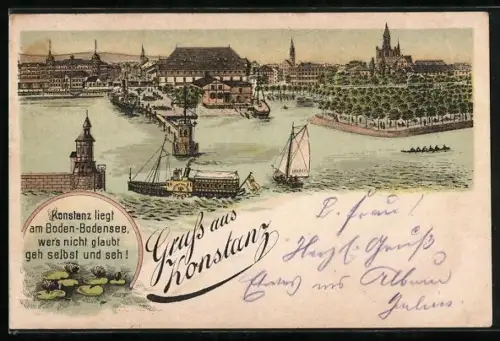 Konstanz liegt
am Boden-Bodensee,
wers nicht glaubt
geh selbst und seh!
Gruß aus
Konstanz
L. Frau!
Herzl. Gruß
Etwas ins Album
Julius.